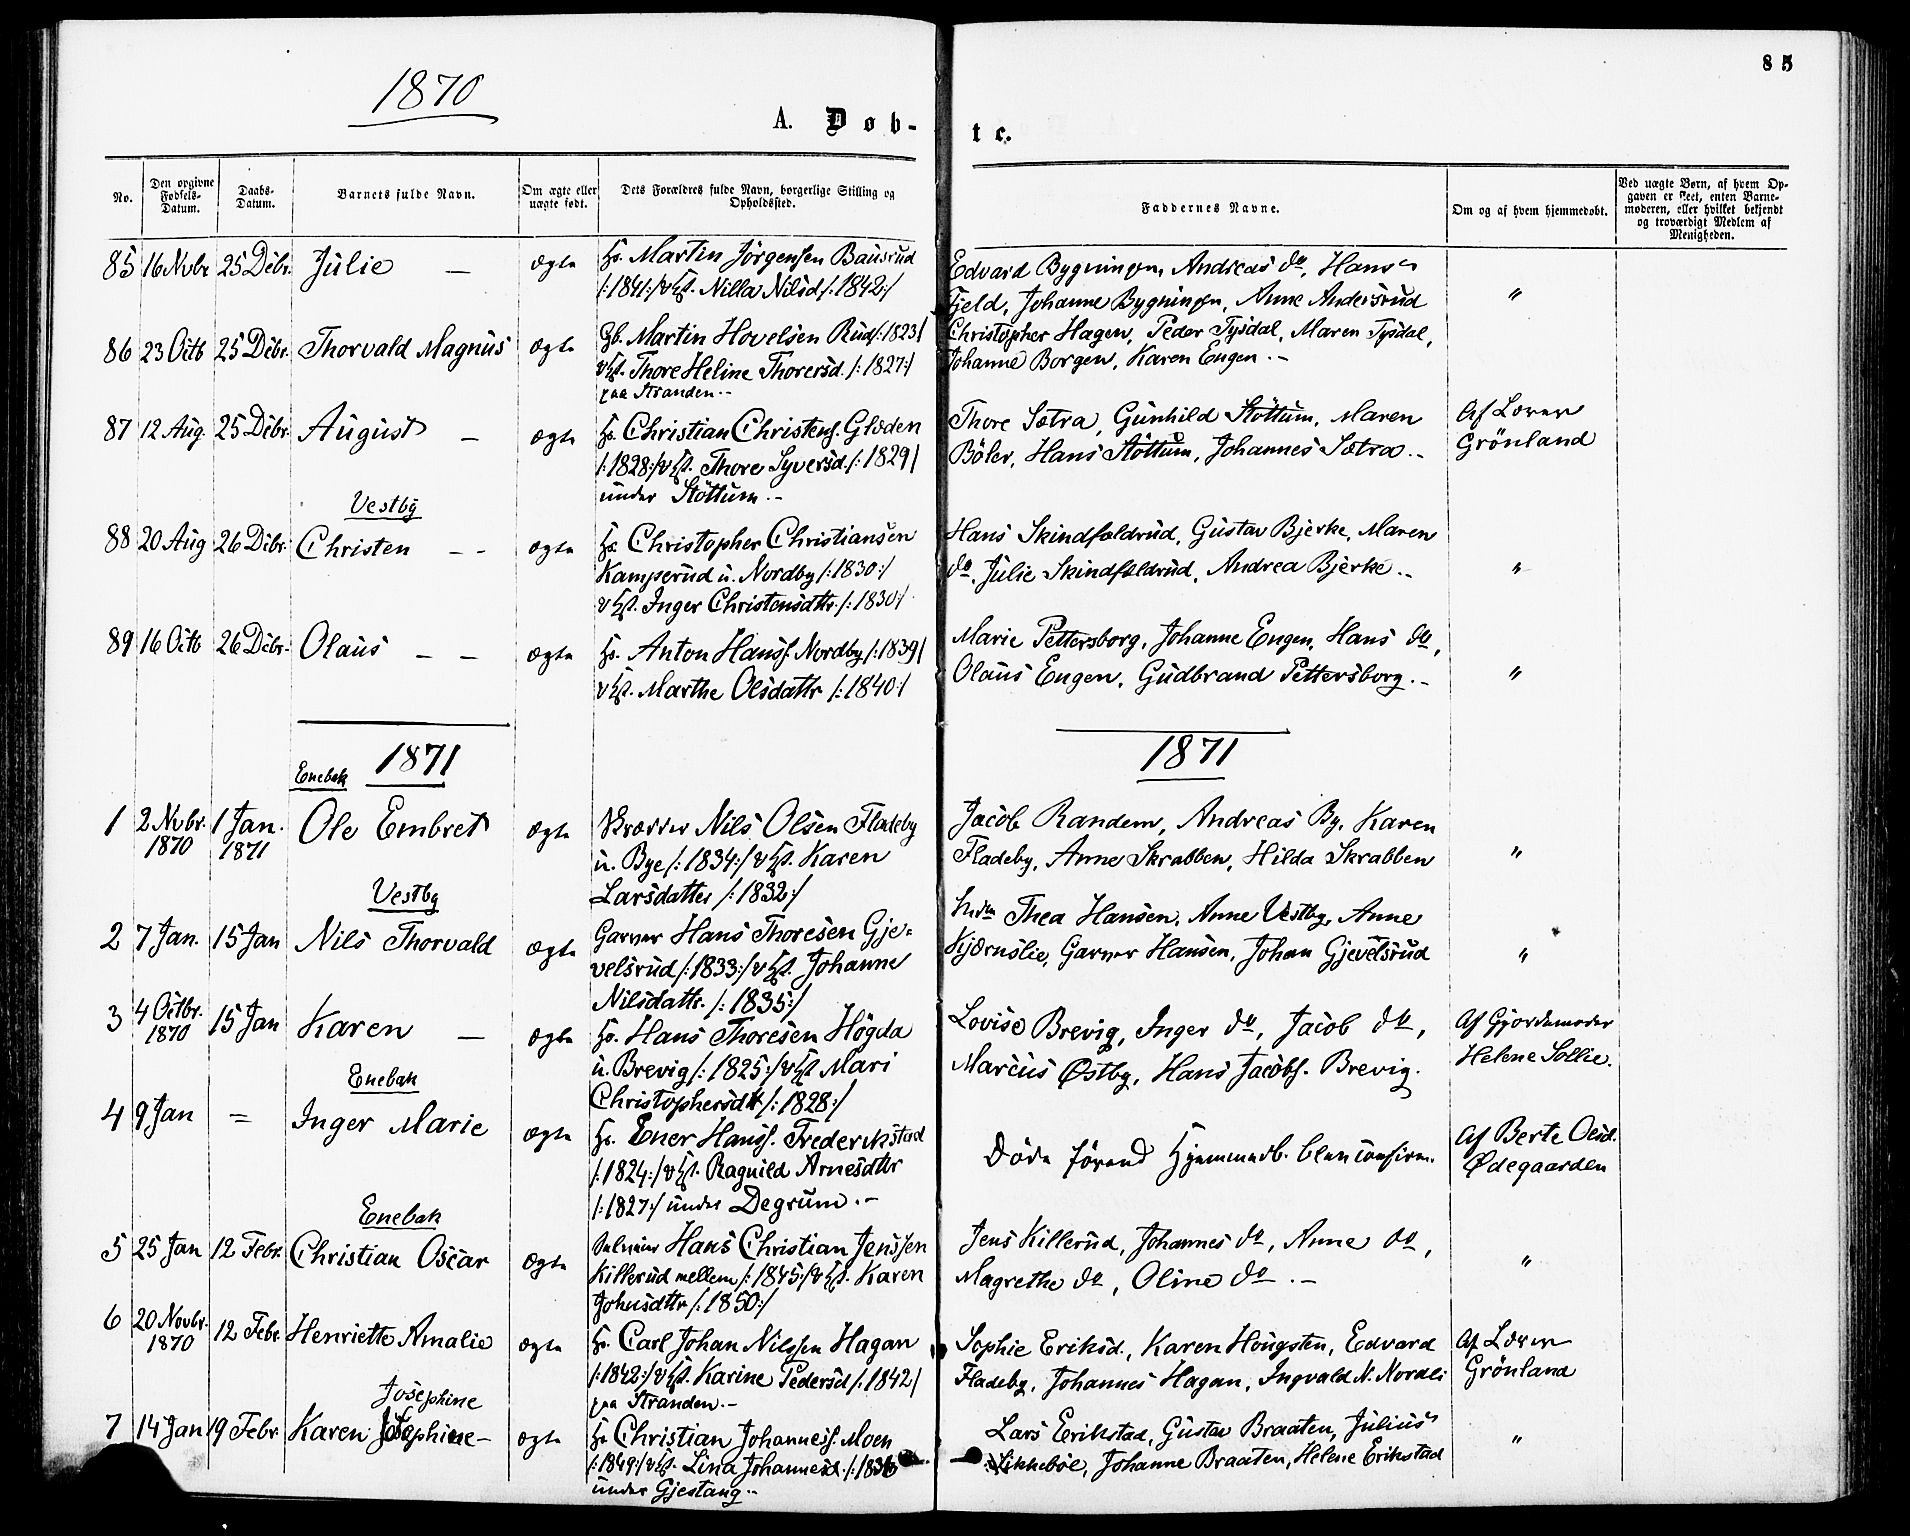 1870
85
A. Døb-
te.
No.
Den opgivne Fødsels-Datum.
Daabs-Datum.
Barnets fulde Navn.
Om ægte eller uægte født.
Dets Forældres fulde Navn, borgerlige Stilling og Opholdssted.
Faddernes Navne.
Om og af hvem hjemmedøbt.
Ved uægte Børn, af hvem Opgaven er skeet, enten Barnemoderen, eller hvilket bekjendt og troværdigt Medlem af Menigheden.
85 16 Nvbr 25 Dcbr. Julie — ægte
Hs. Martin Jörgensen Bausrud
/:1841:/ & Hst. Nilla Nilsd /:1842:/
Edvard Bygningen, Andreas do, Hans
Fjeld, Johanne Bygningen, Anne Andersrud
"
86 23 Octb 25 Dcbr. Thorvald Magnus ægte
Gb. Martin Hovelsen Rud /:1823/
& Hst. Thore Heline Thorersd. /:1827:/
paa Stranden.-
Christopher Hagen, Peder Tysdal, Maren Tysdal,
Johanne Borgen, Karen Engen.-
87 12 Aug. 25 Dcbr. August — ægte
Hs. Christian Christens. Gloden
/:1828:/ & Hst. Thore Syversd. /:1829/
under Stöttum.-
Thore Sætra, Gunhild Stöttum, Maren
Böler, Hans Stöttum, Johannes Sætra.-
Af Lærer
Grönland
Vestby
88 20 Aug 26 Dcbr. Christen - - ægte
Hs. Christopher Christiansen
Kamperud u. Nordby /:1830:/
& Hst. Inger Christensdttr. /:1830:/
Hans Skindfældrud, Gustav Bjerke, Maren
do, Julie Skindfældrud, Andrea Bjerke.-
"
89 16 Octb 26 Dcbr. Olaus - - ægte
Hs. Anton Hanss. Nordby /:1839/
& Hst. Marthe Olsdattr /:1840:/
Marie Pettersborg, Johanne Engen, Hans do,
Olaus Engen, Gudbrand Pettersborg.-
"
1871
1871
Enebak
1 2 Nvbr. 1870 1 Jan. 1871 Ole Embret ægte
Skrædder Nils Olsen Fladeby
u. Bye /:1834:/ & Hst. Karen
Larsdatter /:1832:/
Jacob Randem, Andreas By, Karen
Fladeby, Anne Skrabben, Hilda Skrabben
"
Vestby
2 7 Jan. 15 Jan Nils Thorvald ægte
Garver Hans Thoresen Gje=
velsrud /:1833:/ & Hst. Johanne
Nilsdattr. /:1835:/
Thea Hansen, Anne Vestby, Anne
Kjærnslie, Garver Hansen, Johan Gjevelsrud
"
3 4 Octbr. 1870 15 Jan Karen — ægte
Hs. Hans Thoresen Högda
u. Brevig /:1825:/ & Hst Mari
Christophersdtt /:1828:/
Lovise Brevig, Inger do, Jacob do,
Marcus Østby, Hans Jacobs. Brevig.
Af Gjordemoder
Helene Sollie.
Enebak
4 9 Jan = Inger Marie ægte
Hs. Ener Hanss. Frederikstad
/:1824:/ & Hst. Ragnild Arnesdttr
/:1827:/ under Degrum.-
Döde förend Hjemmedb. blev confirm.
Af Berte Olsd.
Ødegaarden
Enebak
5 25 Jan 12 Febr. Christian Oscar ægte
Hans Christian Jenssen
Killerud mellem /:1845:/ & Hst. Karen
Johnsdttr /:1850:/
Jens Killerud, Johannes do, Anne do,
Magrethe do, Oline do.-
"
6 20 Novbr. 1870 12 Febr. Henriette Amalie ægte
Hs. Carl Johan Nilssen Hagan
/:1842:/ & Hst. Karine Pedersd /:1842/
paa Stranden.-
Sophie Eriksd., Karen Hougsten, Edvard
Fladeby, Johannes Hagan, Ingvald N. Nordli
Af Lærer
Grönland
Josephine
7 14 Jan 19 Febr. Karen Josephine - ægte
Hs Christian Johanness. Moen
/:1849:/ & Hst. Lina Johannesd. /:1836
under Gjestang.-
Lars Erikstad, Gustav Braaten, Julius
Likkeböe, Johanne Braaten, Helene Erikstad
"